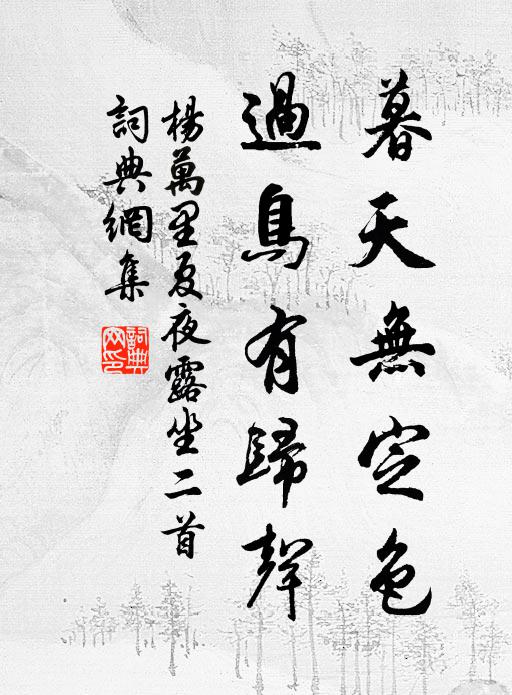 暮天無定色
過鳥有歸聲
楊萬里夏夜露坐二首
詞典網集
詞典網印